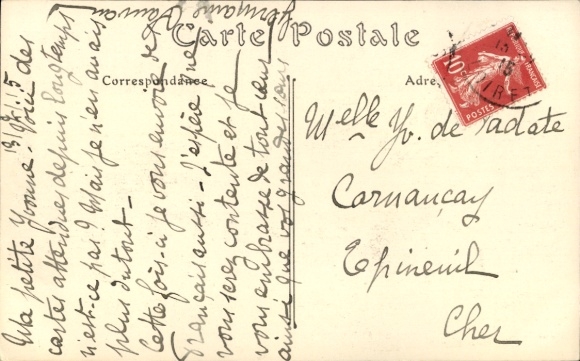 Carte Postale
Correspondance
Adre
13/9/15
Ma petite Yvonne - Voici des
cartes attendues depuis longtemps
n'est-ce pas? Mais je n'en avais
plus du tout -
Cette fois-ci je vous envoie de
Français aussi - J'espère que
vous serez contente et je
vous embrasse de tout cœur
ainsi que vos grandes sœurs
Germaine
Melle Yv. de
Cornançay
Epineuil
Cher
RÉPUBLIQUE FRANÇAISE
10c
POSTES
LOIRET